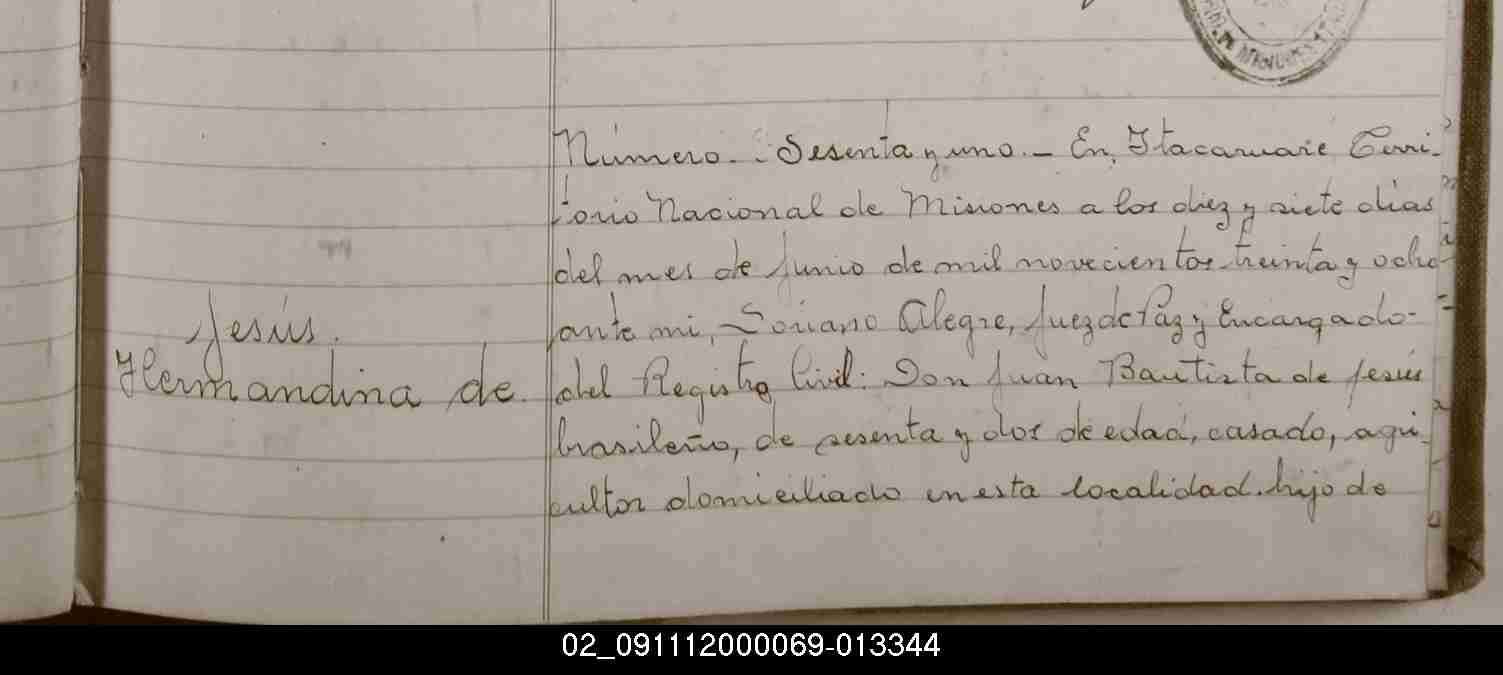 Número.- Sesenta y uno.- En, Itacaruaré Terri-
torio Nacional de Misiones a los diez y siete dias
del mes de Junio de mil novecientos treinta y ocho
ante mi, Soriano Alegre, Juez de Paz y Encargado
del Registro Civil: Don Juan Bautista de Jesús
brasileño, de sesenta y dos de edad, casado, agri-
cultor domiciliado en esta localidad. hijo de
Jesús.
Hermandina de
02_091112000069-013344